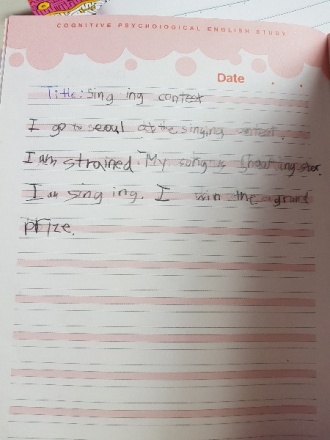 COGNITIVE PSYCHOLOGICAL ENGLISH STUDY
Date
Title: Sing ing contest
I go to seoul at the singing contest.
I am strained. My song is Shooting star
I am sing ing. I win the grand
prize.